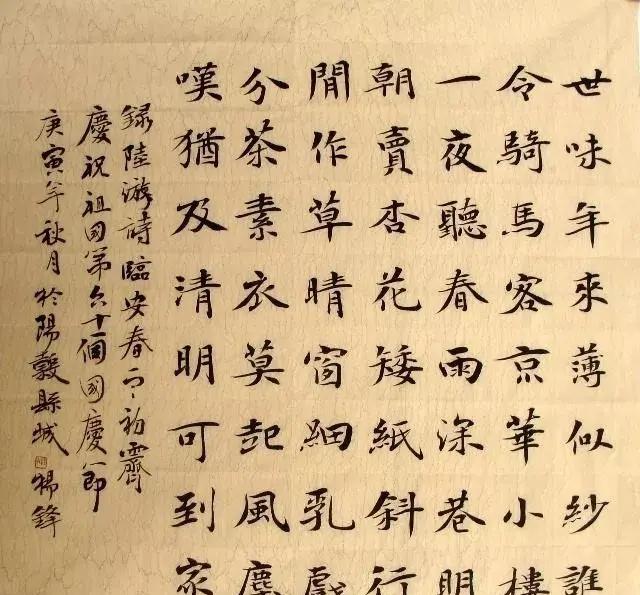 世味年來薄似紗誰
令騎馬客京華小樓
一夜聽春雨深巷明
朝賣杏花矮紙斜行
閒作草晴窗細乳戲
分茶素衣莫起風塵
嘆猶及清明可到家
錄陸游詩臨安春雨初霽
慶祝祖国第六十個國慶節
庚寅年秋月於陽穀縣城 楊鋒